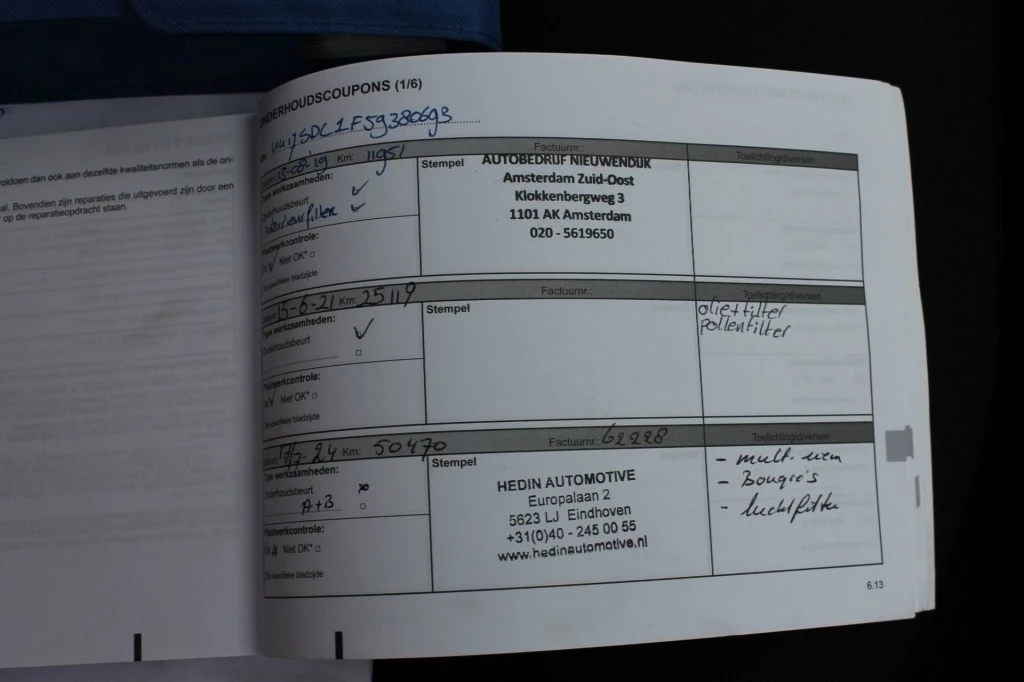 voldoen dan ook aan dezelfde kwaliteitsnormen als de on-
al. Bovendien zijn reparaties die uitgevoerd zijn door een
op de reparatieopdracht staan.
ONDERHOUDSCOUPONS (1/6)
Datum: 13-08-'19 Km: 11951
Factuurnr.:
Toelichting/diversen
Type werkzaamheden:
Onderhoudsbeurt
Interieurfilter
Plaatwerkcontrole:
OK Niet OK*
*Zie specifieke bladzijde
Stempel
AUTOBEDRIJF NIEUWENDIJK
Amsterdam Zuid-Oost
Klokkenbergweg 3
1101 AK Amsterdam
020 - 5619650
Datum: 15-6-21 Km: 25119
Factuurnr.:
Toelichting/diversen
Type werkzaamheden:
Onderhoudsbeurt
Plaatwerkcontrole:
OK Niet OK*
*Zie specifieke bladzijde
Stempel
olie+filter
pollenfilter
Datum: 17/7-24 Km: 50470
Factuurnr.: 62228
Toelichting/diversen
Type werkzaamheden:
Onderhoudsbeurt
A+B
Plaatwerkcontrole:
OK Niet OK*
*Zie specifieke bladzijde
Stempel
HEDIN AUTOMOTIVE
Europalaan 2
5623 LJ Eindhoven
+31(0)40 - 245 00 55
www.hedinautomotive.nl
- mult. riem
- Bougie's
- luchtfilter
6.13